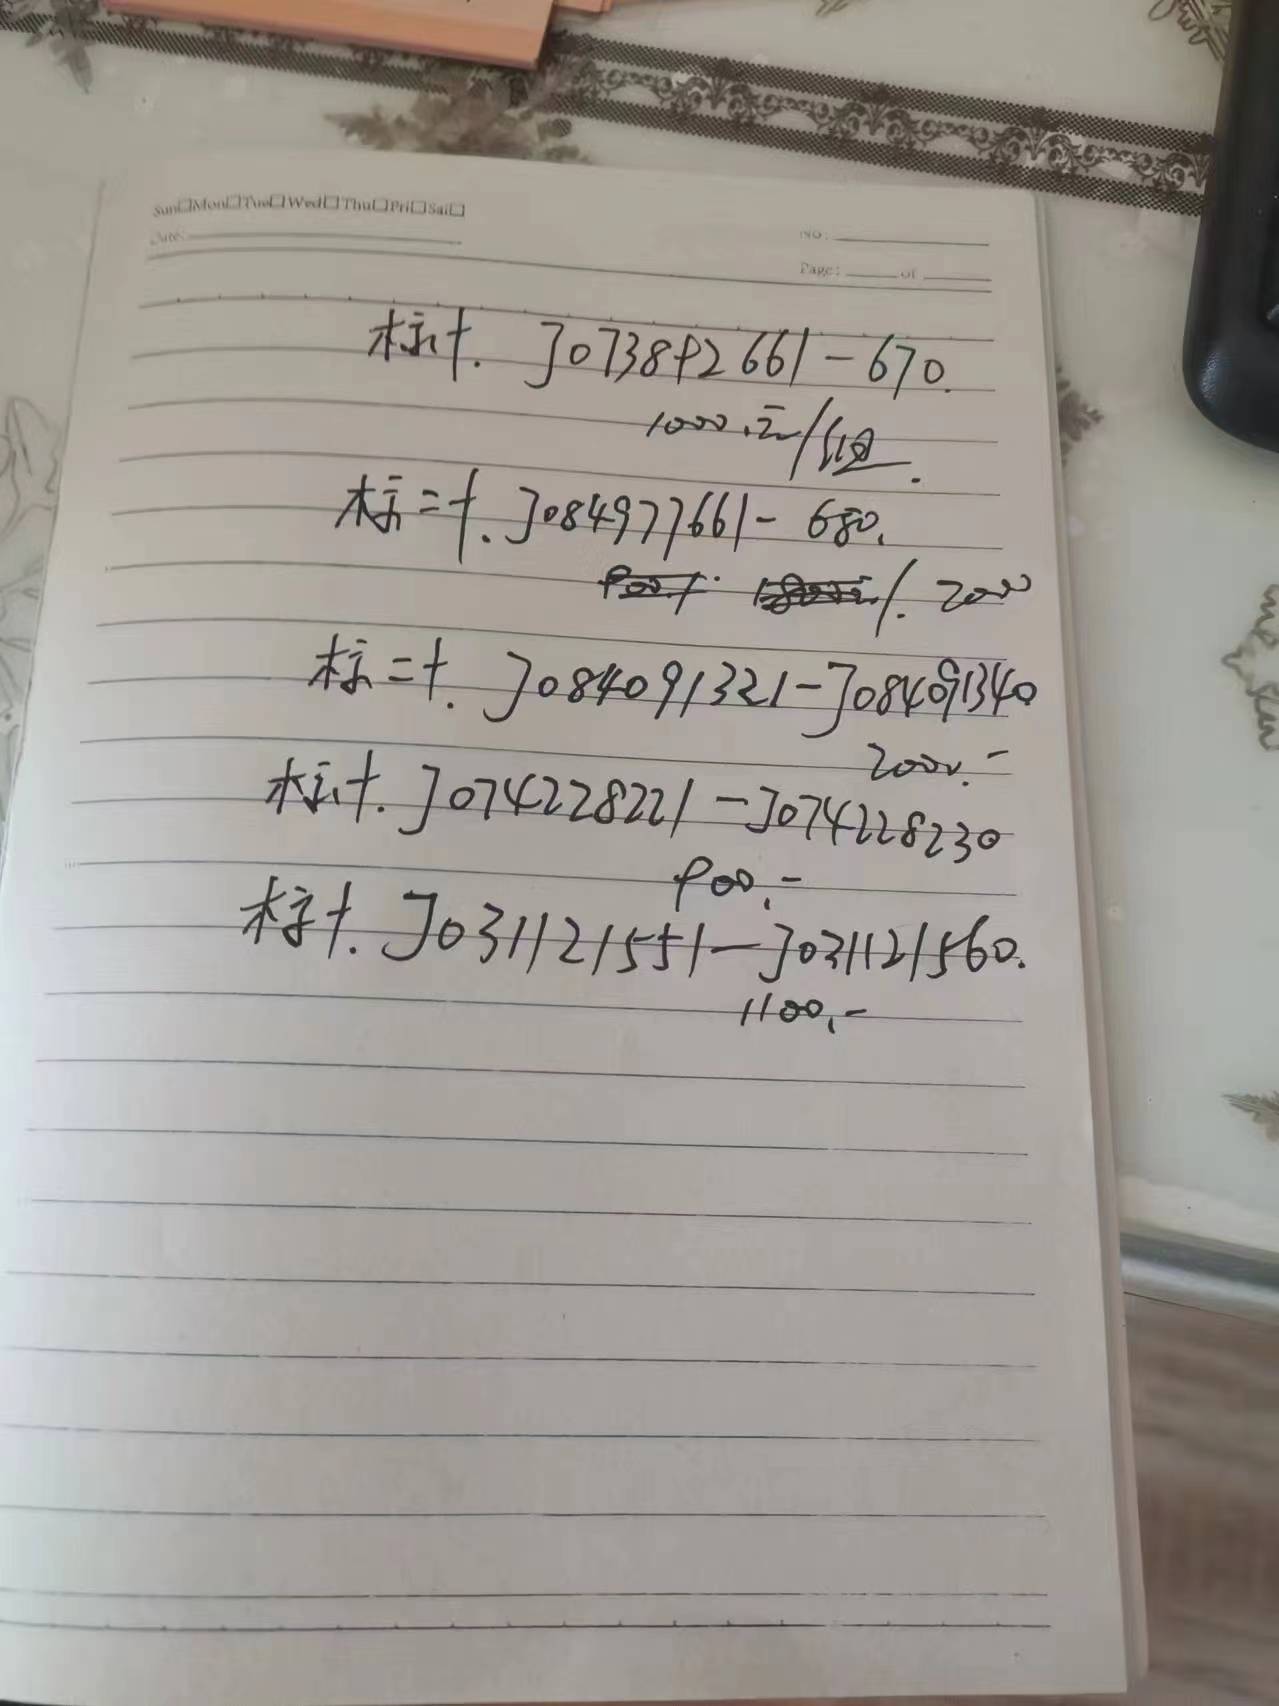 Sun□Mon□Tue□Wed□Thu□Fri□Sat□
Date:
NO:
Page: of
标十. J073892661-670.
1000.元/组.
标二十. J084977661-680.
2000
标二十. J084091321-J084091340
2000.-
标十. J074228221-J074228230
900.-
标十. J031121551-J031121560.
1100.-